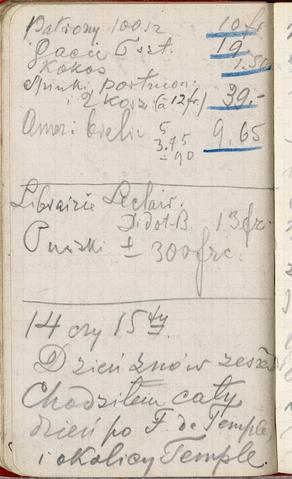 Patrony 100szt 10 fr
Gacie 6 szt. 19
Kokos 1.50
Spinki, portmon.
i 2 kosz. (à 12 fr.) 39.-
Amer. i 5
3.75
90 9.65
Librairie Leclair.
Didot-B. 13 frc.
± 300 frc.
14 czy 15ty.
Dzień znów zeszedł
Chodziłem cały
dzień po F. de Temple,
i okolicy Temple.